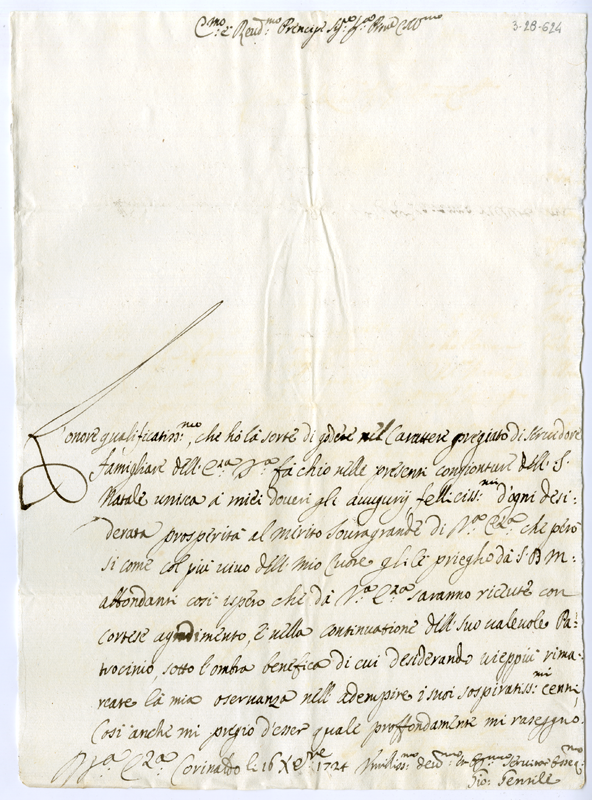 3-28-624
E.mo e Reud.mo Prencipe Sig.r
L'onore qualificatiss.mo, che hò la sorte di godere nel Carattere pregiato di seruidore
famigliare dell' E.za V.ra fà ch'io nelle presenti congionture dell S.
Natale unisca à miei doueri gli auugurij feliciss.mi d'ogni desi-
derata prosperità al merito souragrande di V.ra E.za che però
si come col più uiuo dell mio Cuore gli le priegho dà S. D. M.
abbondanti così spero che dà V.ra E.za saranno riceute con
cortese agradimento, e nella continuatione dell suo ualeuole Pa-
trocinio, sotto l'ombra benefica di cui desiderando uieppiù rimar-
care là mia oseruanza nell adempire i suoi sospiratiss.mi cenni,
Così anche mi pregio d'esser quale proffondamente mi rasegno
V.ra E.za Corinaldo li 16 Xbre 1724 Humiliss.mo Deu.mo
Gio: Gentile